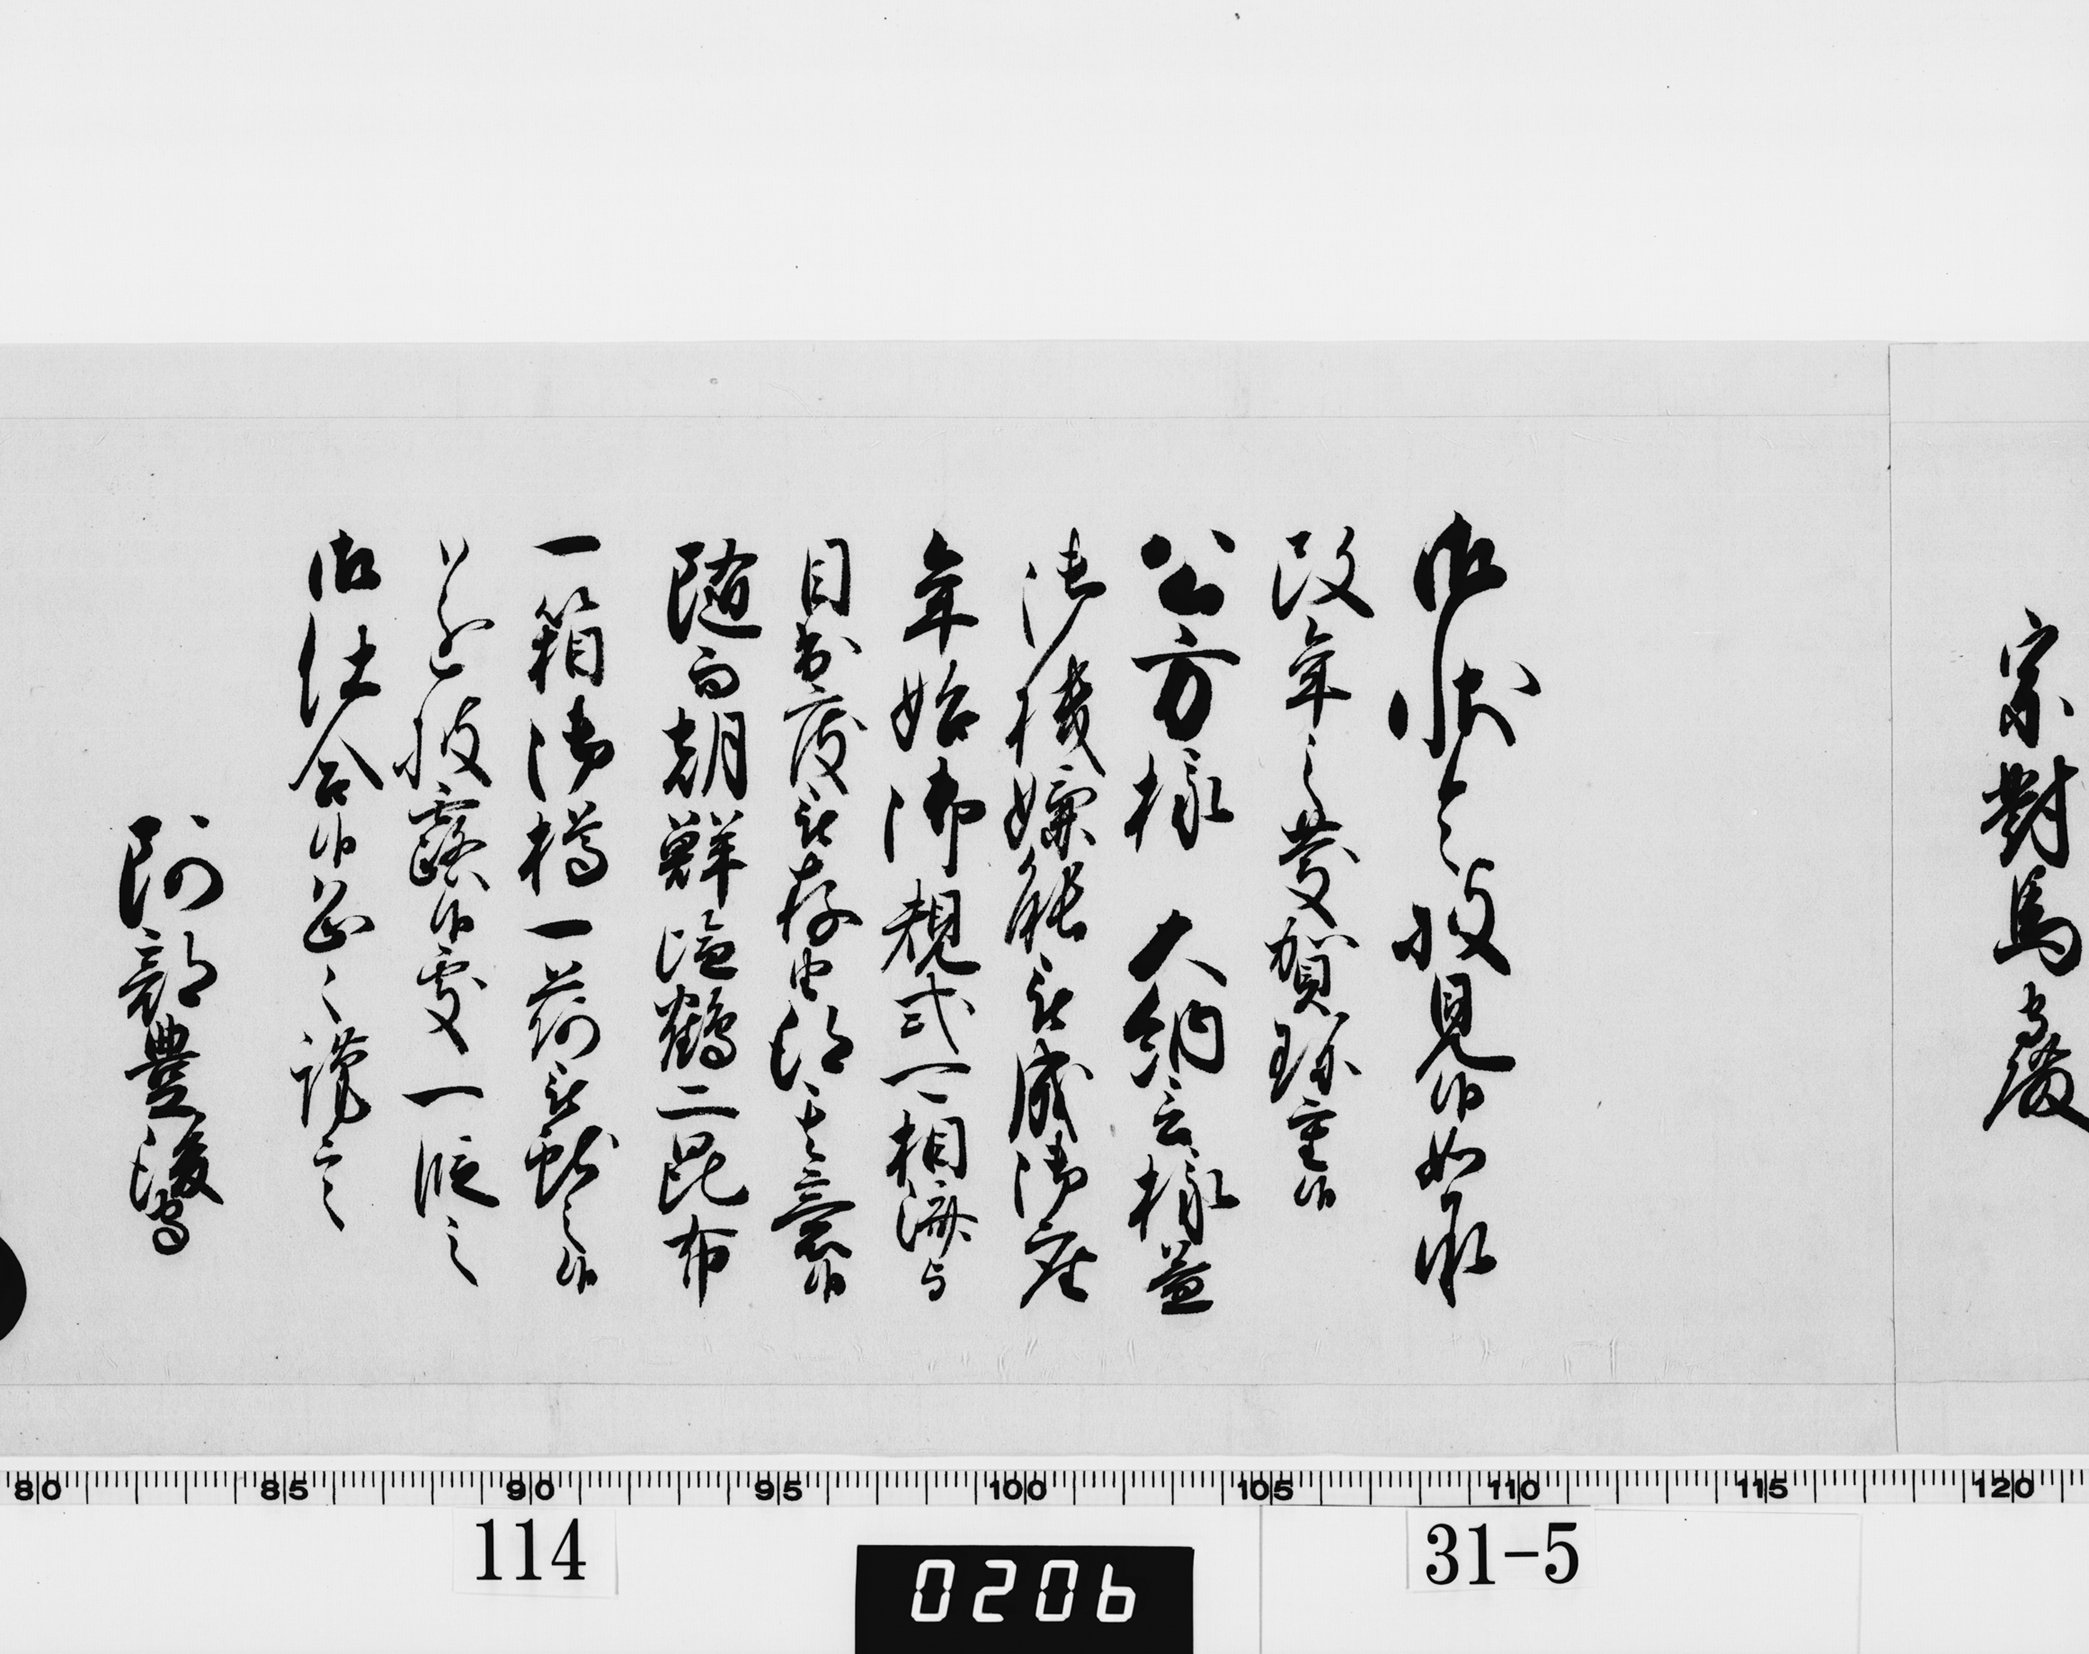 宗對馬守殿
御状令披見候如承
改年之慶賀珍重候
公方様大納言様益
御機嫌能被成御座
年始御規式可相済与
目出度被存由得其意候
随而朝鮮塩鶴二昆布
一箱御樽一荷被献之候
遂披露候處一段之
御仕合候恐々謹言
阿部豊後守
80 85 90 95 100 105 110 115 120
114
0206
31-5